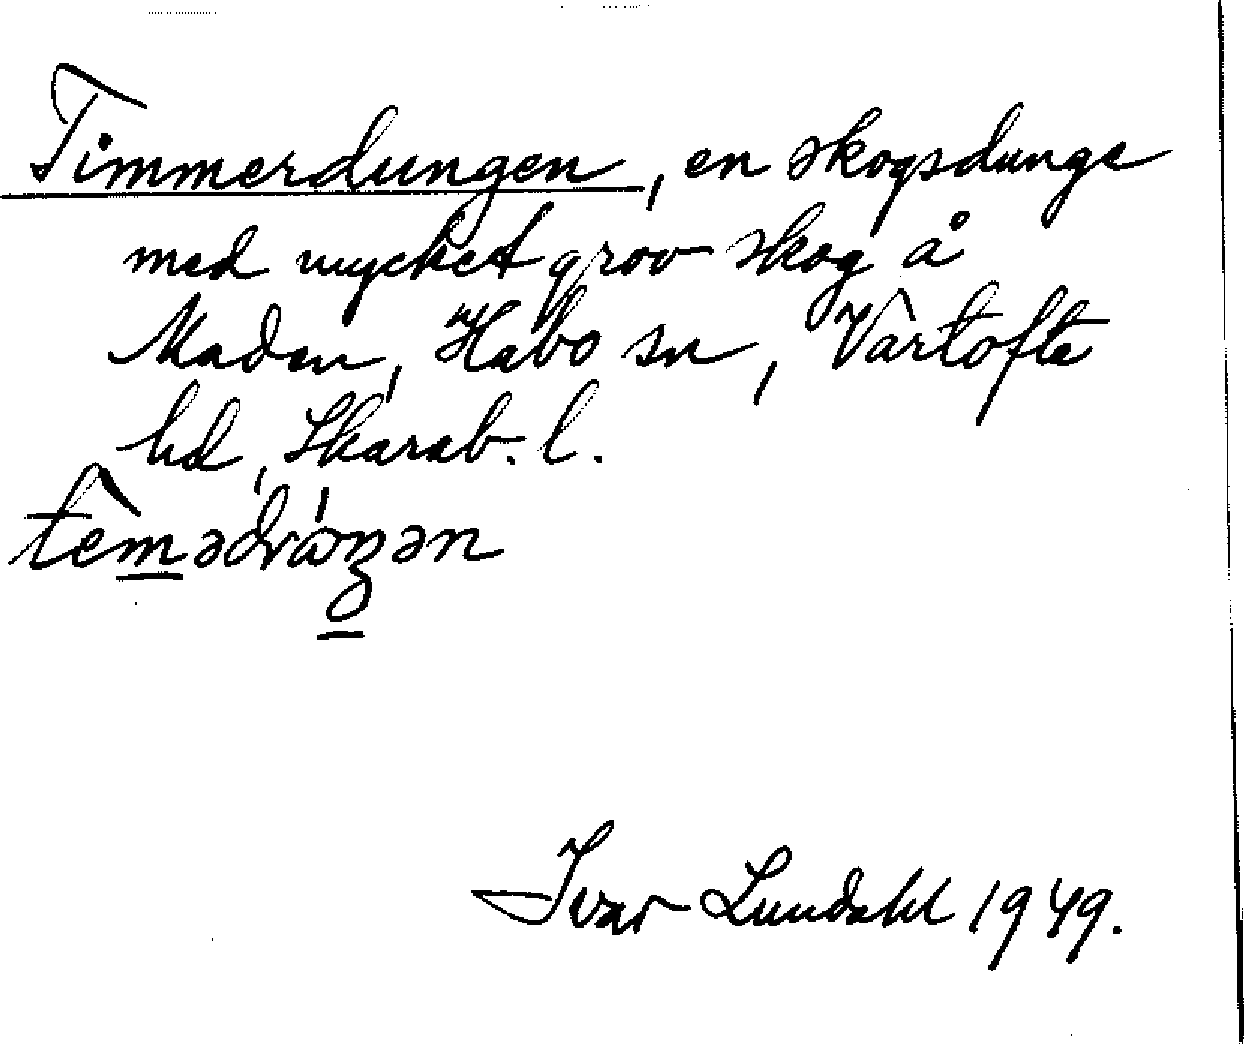 Timmerdungen, en skogsdunge
med mycket grov skog å
Maden, Habo sn, Vartofta
hd, Skarab. l.
Ivar Lundahl 1949.